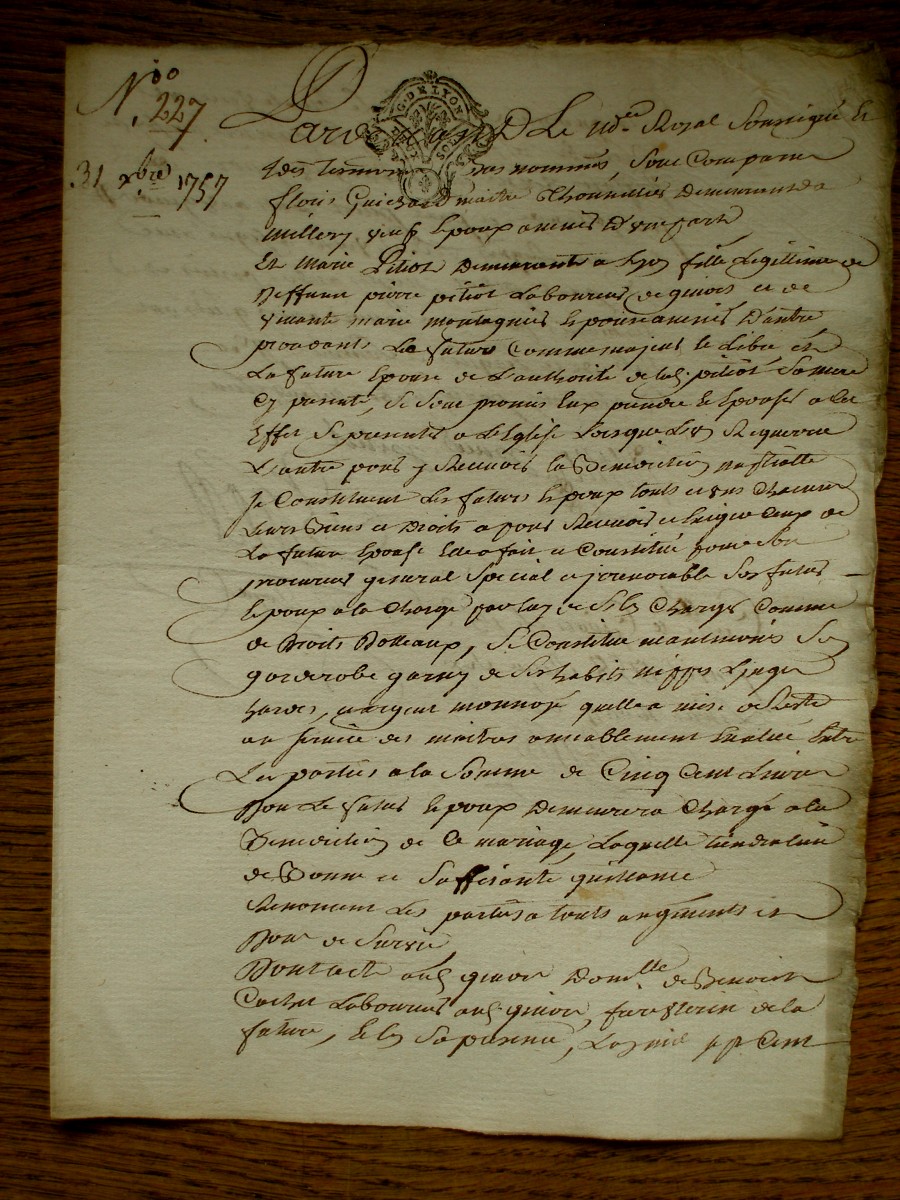 N.° 227
31 xbre 1757
G. DE LYON
Pardevant Le Nore Royal Soussigné Et
des temoins bas nommés, Sont Comparus
fleury Guichard maitre Thonnelier Demeurant a
Millery veuf Epoux a venir D'une part
Et Marie Pitiot Demeurante a Lyon fille Legittime de
Deffunt pierre pitiot Laboureur de et de
vivante marie Epouse avenir D'autre
part Le futur Comme majeur et Libre et
La future Epouse de L'authorité de lad. pitiot Sa mere
Cy presente, Se Sont promis Eux prendre et Epouser a Cet
Effet Se presenter a L'Eglise Lorsque L'un Requerra
L'autre pour y Recevoir la Benediction nuptialle
Se Constituent Les futurs Epoux touts et uns Chacuns
Leurs Biens et Droits a pour Recevoir et Exiger Ceux de
La future Epouse Elle a fait et Constitué pour Son
procureur general Special et irrevocable Son futur
Epoux a la Charge par luy de Les Charger Comme
de Droits Dotteaux, Se Constitue neantmoins Sa
garderobe garny de Ses habits nippes Linge
hardes, et argent monnoyé quelle a mise de Reste
au Service des maitres amiablement Evalué Entre
Les parties a la Somme de Cinq Cent Livres
Dont Le futur Epoux Demeurera Chargé a la
Benediction de Ce mariage, Laquelle tiendra lieu
de Bonne et Suffisante quittance
Renoncent Les parties a touts augments et
Dons de Survie
Dont acte aud. Domlle de Benoist
Laboureur aud. , de la
future, Et En Sa presence, L'an mil sept Cent